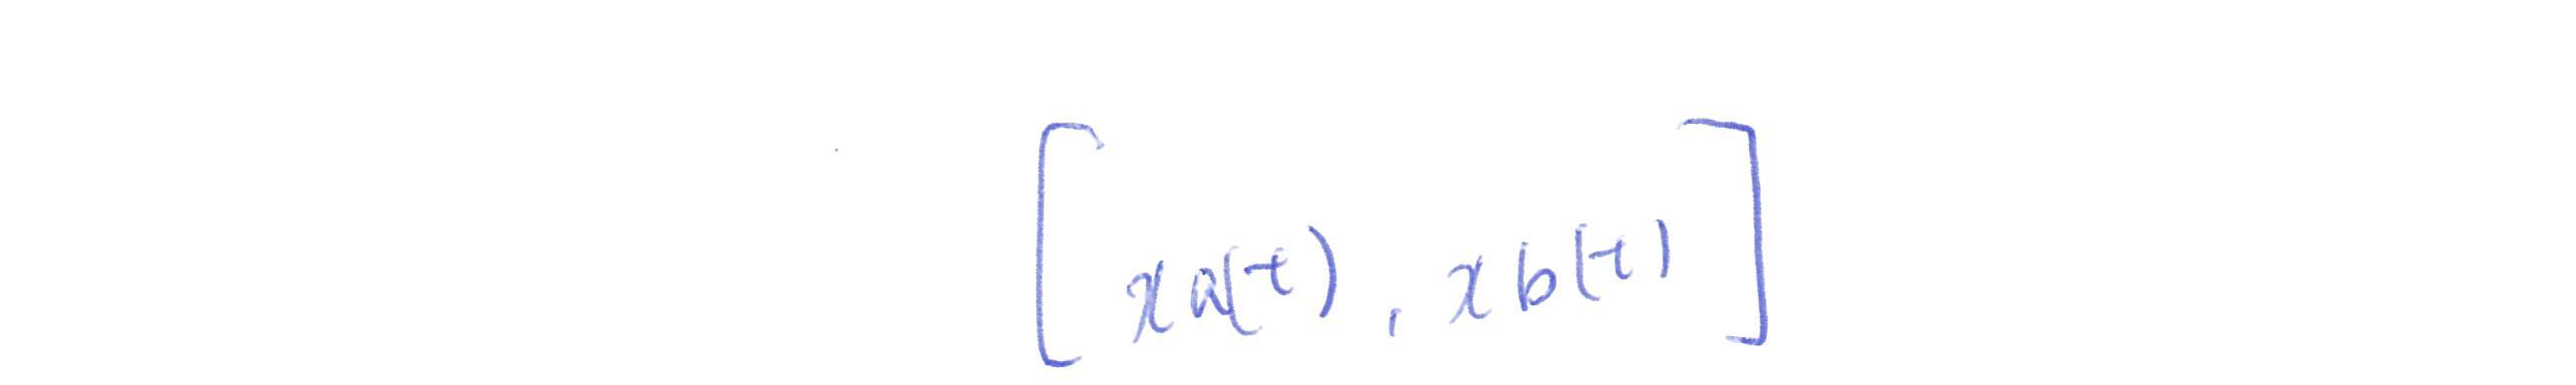 [xa(t), xb(t)]